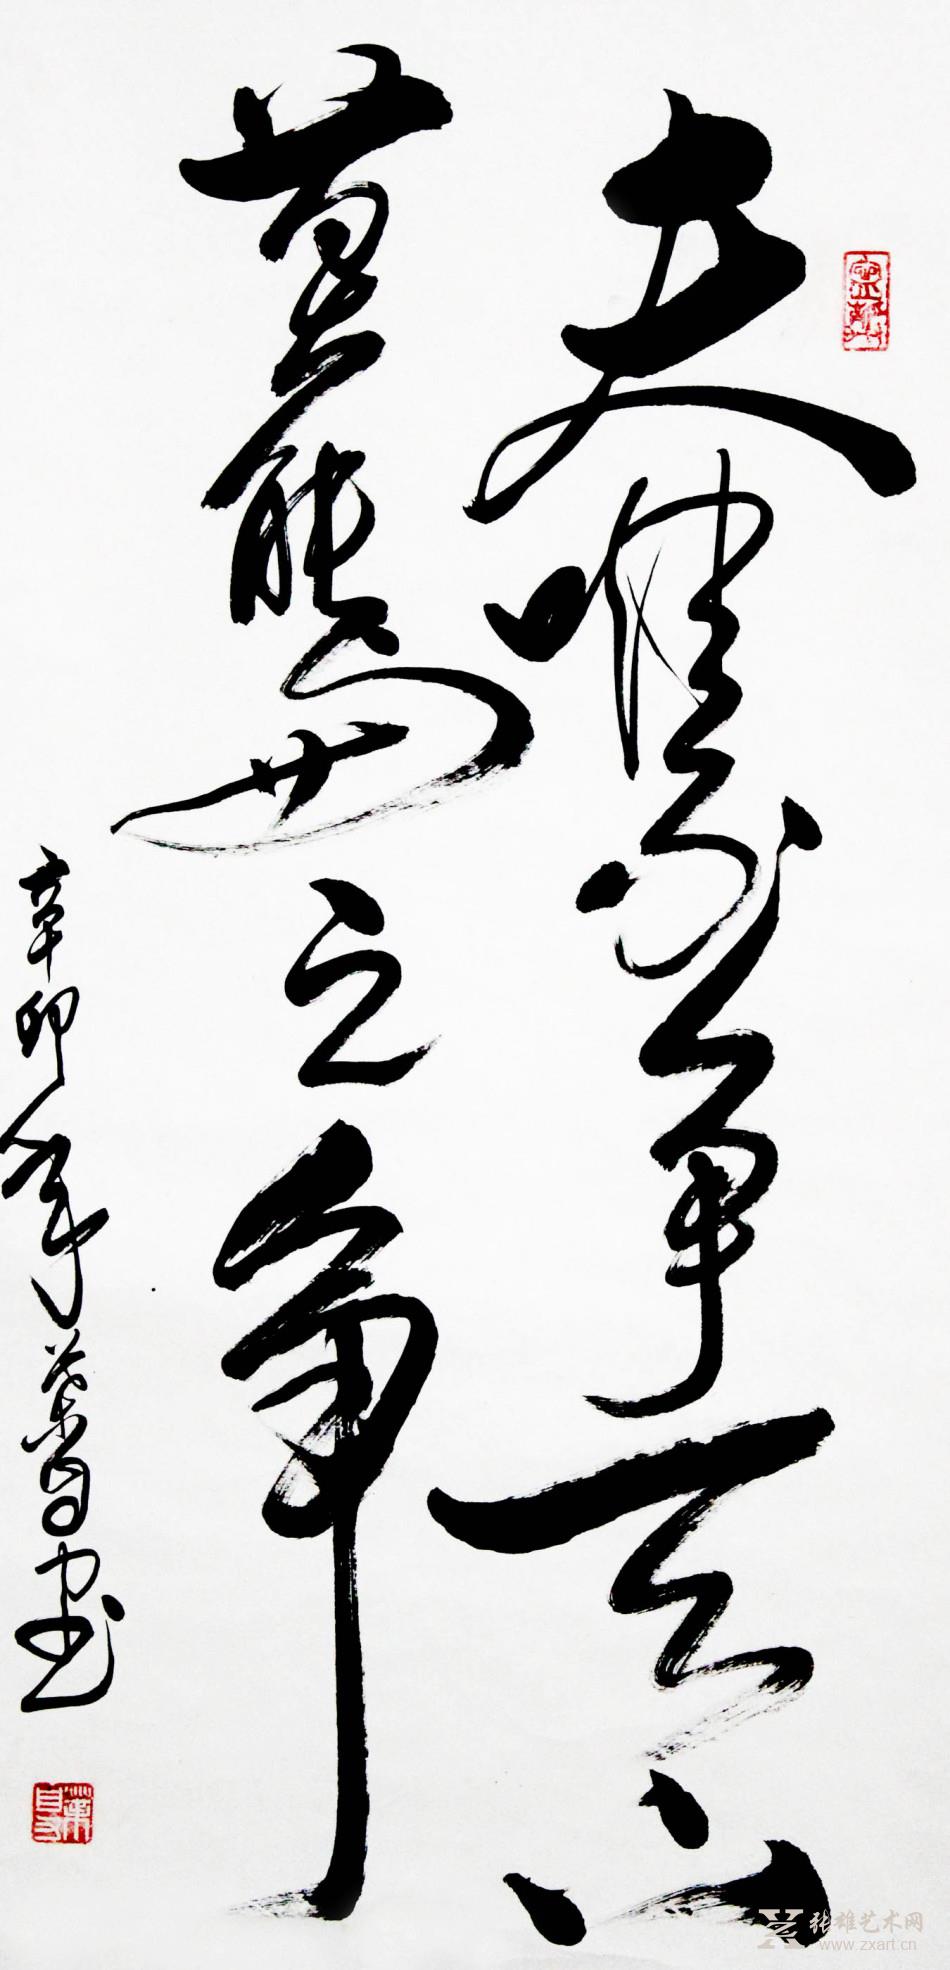 夫唯不爭天下
莫能與之爭
辛卯年葉
张雄艺术网
www.zxart.cn